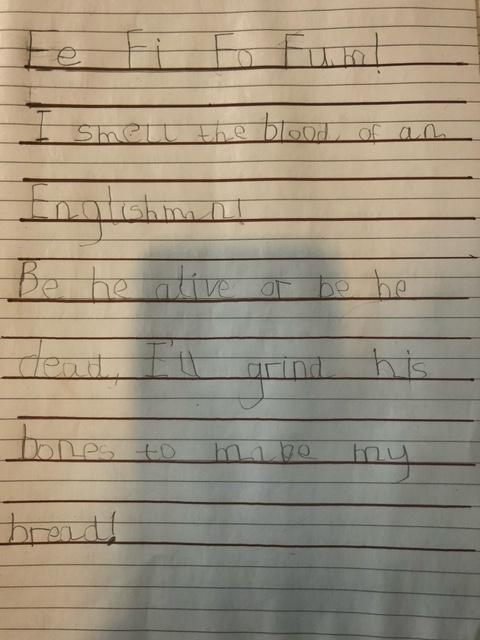 Fe Fi Fo Fum!
I smell the blood of an
Englishman!
Be he alive or be he
dead, I'll grind his
bones to make my
bread!